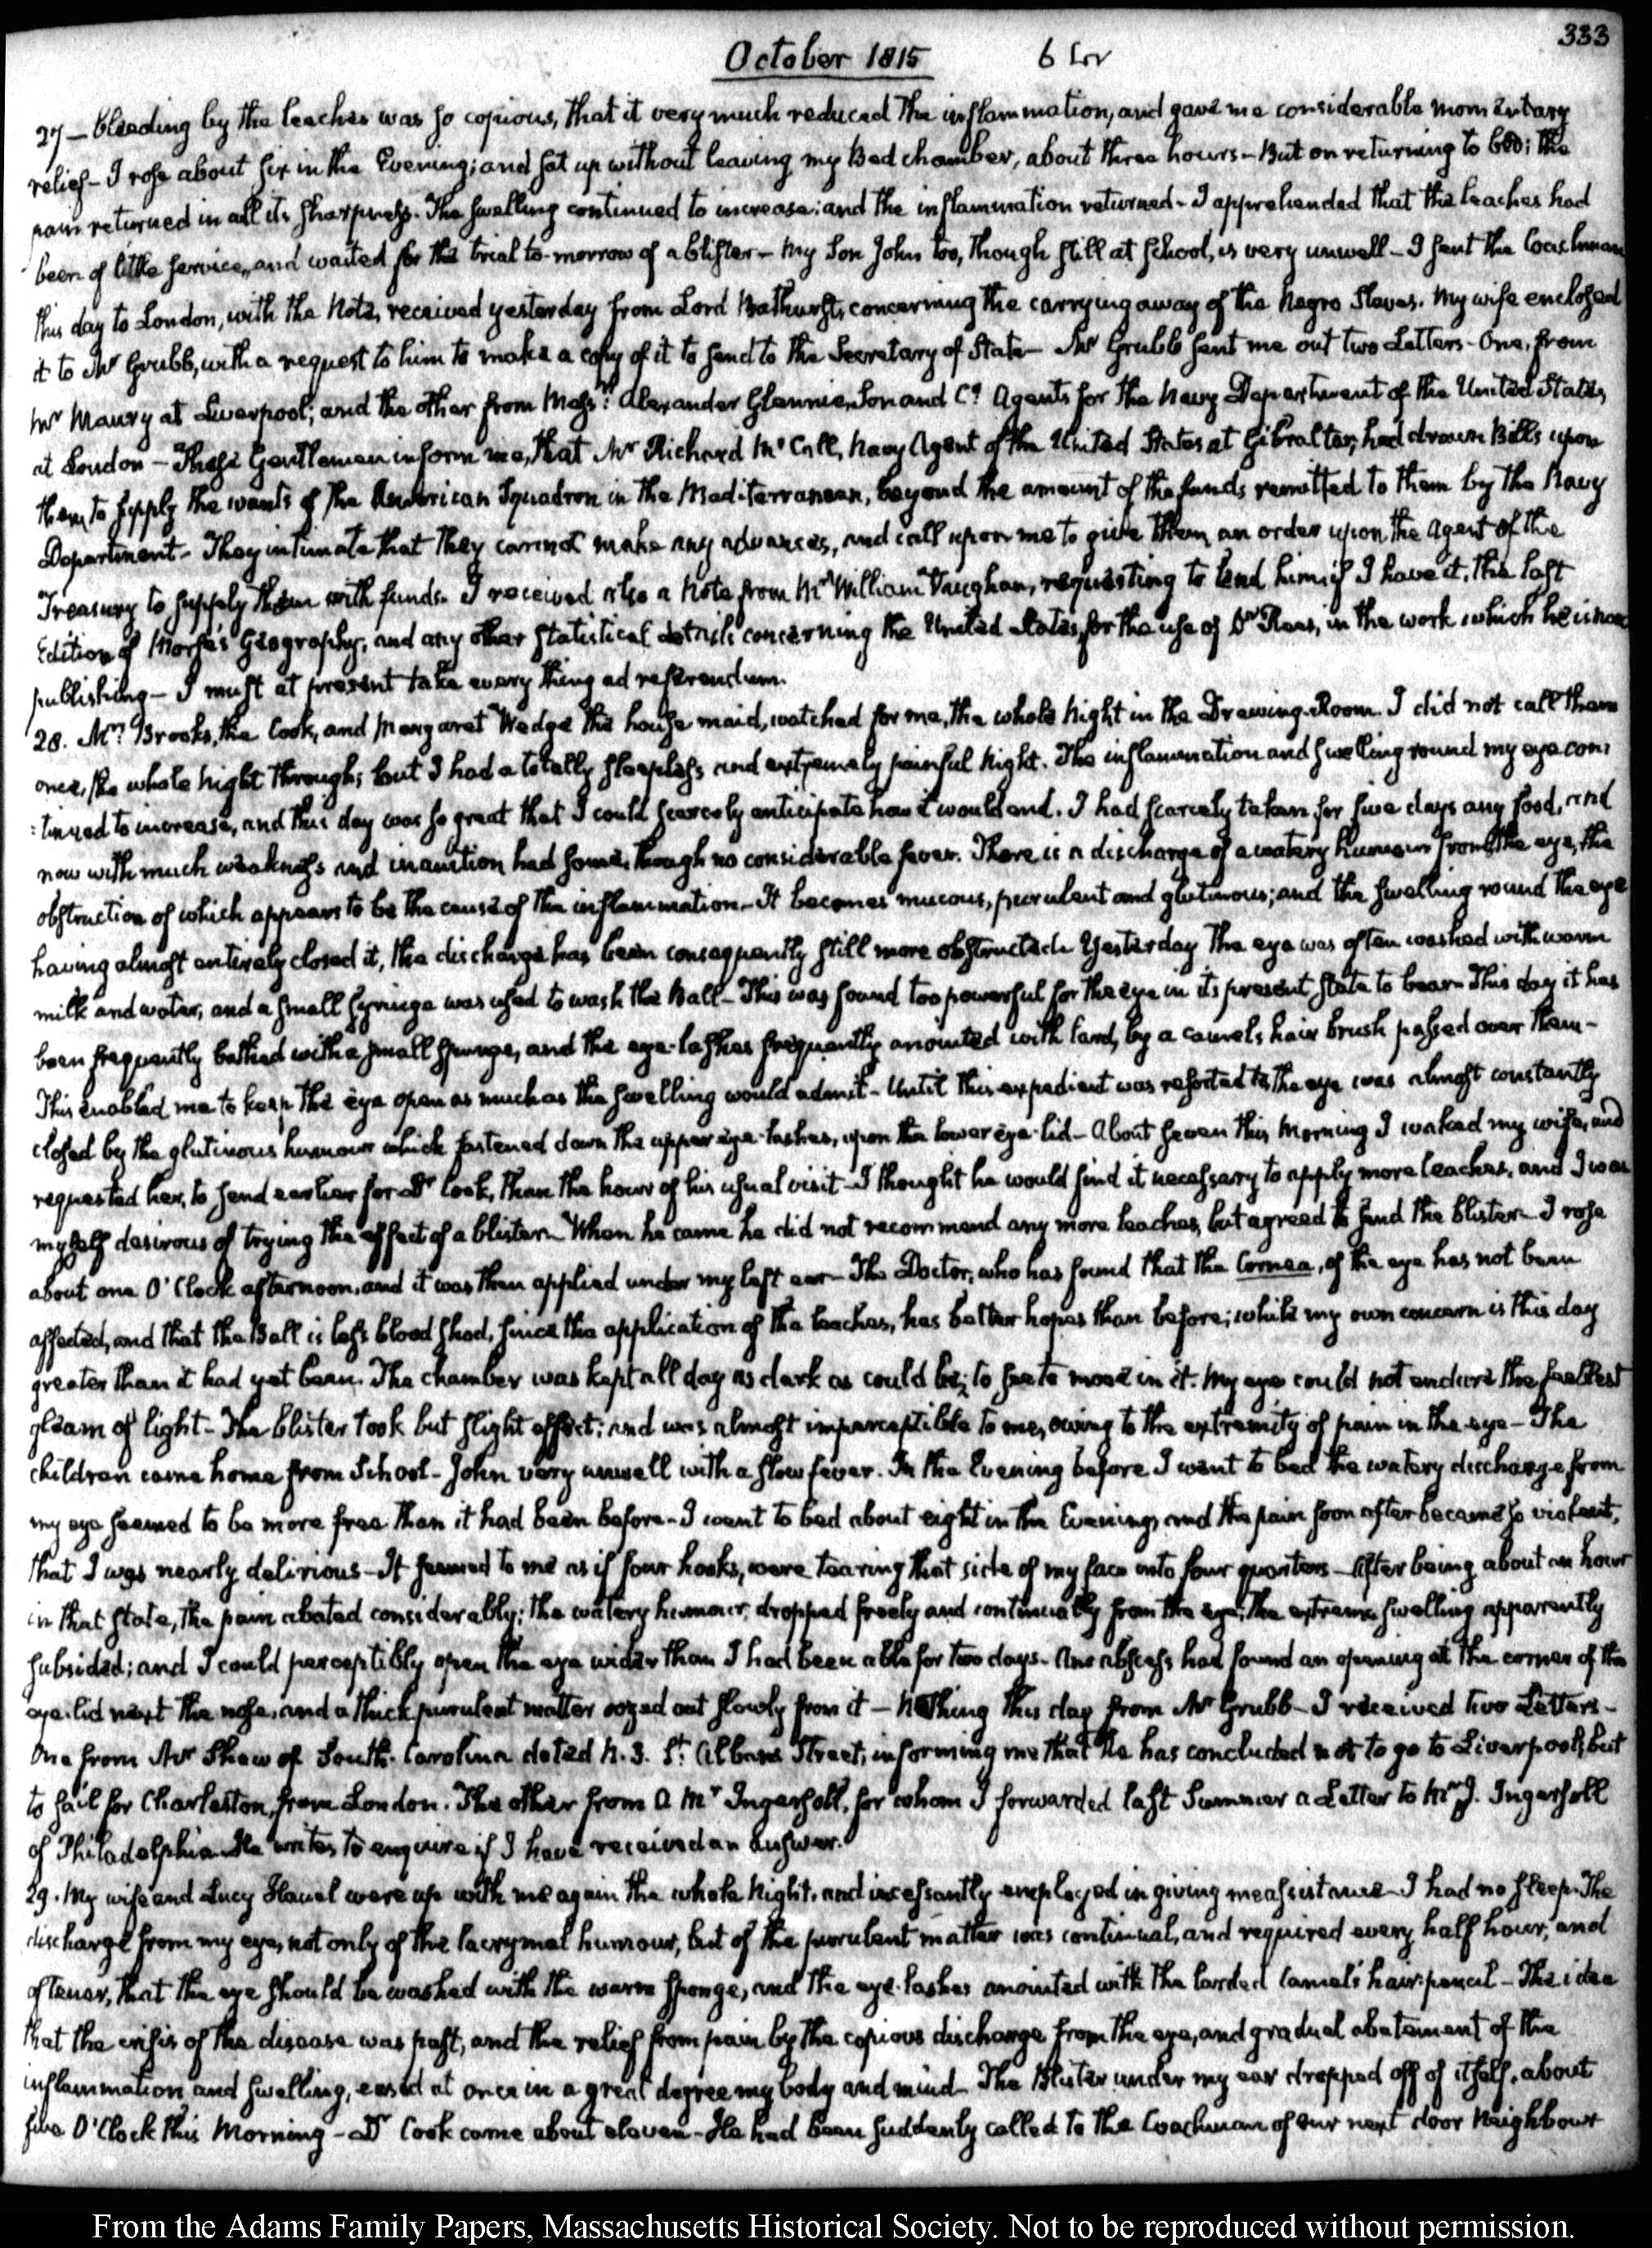 October 1815
333
27 — bleeding by the leaches was so copious, that it very much reduced the inflammation, and gave me considerable momentary
relief — I rose about six in the Evening; and sat up without leaving my Bed chamber, about three hours — But on returning to bed; the
pain returned in all its sharpness. The swelling continued to increase; and the inflammation returned — I apprehended that the leaches had
been of little service, and waited for the trial to-morrow of a blister — My Son John too, though still at School, is very unwell — I sent the Coachman
this day to London, with the Note, received yesterday from Lord Bathurst, concerning the carrying away of the Negro Slaves. My wife enclosed
it to Mr Grubb, with a request to him to make a copy of it to send to the Secretary of State — Mr Grubb sent me out two Letters — One, from
Mr Maury at Liverpool; and the other from Messrs Alexander Glennie, Son and Co. Agents for the Navy Department of the United States,
at London — These Gentlemen inform me, that Mr Richard McCall, Navy Agent of the United States at Gibraltar, had drawn Bills upon
them, to supply the wants of the American Squadron in the Mediterranean, beyond the amount of the funds remitted to them by the Navy
Department — They intimate that they cannot make any advances, and call upon me to give them, an order upon the Agent of the
Treasury to supply them with funds. I received also a Note from Mr William Vaughan, requesting to lend him, if I have it, the last
Edition of Morse's Geography, and any other statistical details concerning the United States, for the use of Dr Rees, in the work which he is now
publishing — I must at present take every thing ad referendum.
28. Mrs Brooks, the Cook, and Margaret Wedge the house maid, watched for me, the whole Night in the Drawing-Room. I did not call them
once, the whole Night through; but I had a totally sleepless and extremely painful Night. The inflammation and swelling round my eye con:
:tinued to increase, and this day was so great that I could scarcely anticipate how it would end. I had scarcely taken for five days any food, and
now with much weakness and inanition had some, though no considerable fever. There is a discharge of a watery humour from the eye, the
obstruction of which appears to be the cause of the inflammation — It becomes mucous, purulent and glutinous; and the swelling round the eye
having almost entirely closed it, the discharge has been consequently still more obstructed. Yesterday the eye was often washed with warm
milk and water, and a small syringe was used to wash the Ball — This was found too powerful for the eye in its present state to bear — This day it has
been frequently bathed with a small sponge, and the eye-lashes frequently anointed with lard, by a camels hair brush passed over them —
This enabled me to keep the eye open as much as the swelling would admit — Until this expedient was resorted to the eye was almost constantly
closed by the glutinous humour which fastened down the upper eye-lashes, upon the lower eye-lid — About seven this Morning I waked my wife, and
requested her, to send earlier for Dr Cook, than the hour of his usual visit — I thought he would find it necessary to apply more leaches, and I was
myself desirous of trying the effect of a blister — When he came he did not recommend any more leaches, but agreed to send the blister — I rose
about one O'Clock afternoon, and it was then applied under my left ear — The Doctor, who has found that the Cornea, of the eye has not been
affected, and that the Ball is less blood shod, since the application of the leaches, has better hopes than before; while my own concern is this day
greater than it had yet been. The chamber was kept all day as dark as could be, to see to move in it. My eye could not endure the faintest
gleam of light — The blister took but slight effect; and was almost imperceptible to me, owing to the extremity of pain in the eye — The
children came home from School — John very unwell with a slow fever. In the Evening before I went to bed the watery discharge from
my eye seemed to be more free than it had been before — I went to bed about eight in the Evening, and the pain soon after became so violent,
that I was nearly delirious — It seemed to me as if four hooks, were tearing that side of my face into four quarters — After being about an hour
in that state, the pain abated considerably; the watery humour, dropped freely and continually from the eye; the extreme swelling apparently
subsided; and I could perceptibly open the eye wider than I had been able for two days. An abscess had found an opening at the corner of the
eye-lid next the nose, and a thick purulent matter oozed out slowly from it — Nothing this day from Mr Grubb — I received two Letters —
One from Mr Shaw of South-Carolina dated N. 3. St. Albans Street, informing me that he has concluded not to go to Liverpool, but
to sail for Charleston, from London. The other from a Mr Ingersoll, for whom I forwarded last Summer a Letter to Mr J. Ingersoll
of Philadelphia. He writes to enquire if I have received an answer.
29. My wife and Lucy Houel were up with me again the whole Night, and incessantly employed in giving me assistance — I had no sleep. The
discharge from my eye, not only of the lacrymal humour, but of the purulent matter was continual, and required every half hour, and
oftener, that the eye should be washed with the warm sponge, and the eye-lashes anointed with the larded Camel's hair pencil — The idea
that the crisis of the disease was past, and the relief from pain by the copious discharge from the eye, and gradual abatement of the
inflammation and swelling, eased at once in a great degree my body and mind — The Blister under my ear dropped off of itself, about
five O'Clock this Morning — Dr Cook came about eleven — He had been suddenly called to the Coachman of our next door Neighbour
From the Adams Family Papers, Massachusetts Historical Society. Not to be reproduced without permission.